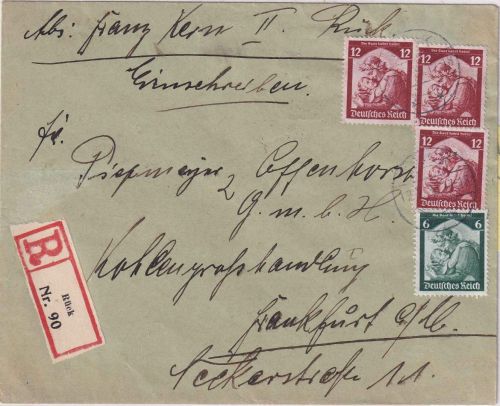 Abs: Franz Kern II. Rück
Einschreiben.
Fa.
Piepmeyer & Oppenhorst
G. m. b. H.
Kohlengroßhandlung
Frankfurt a/M.
Neckarstraße 11.
12 Die Saar kehrt heim! 12
Deutsches Reich
12 Die Saar kehrt heim! 12
Deutsches Reich
12 Die Saar kehrt heim! 12
Deutsches Reich
6
Deutsches Reich
R
Rück
Nr. 90